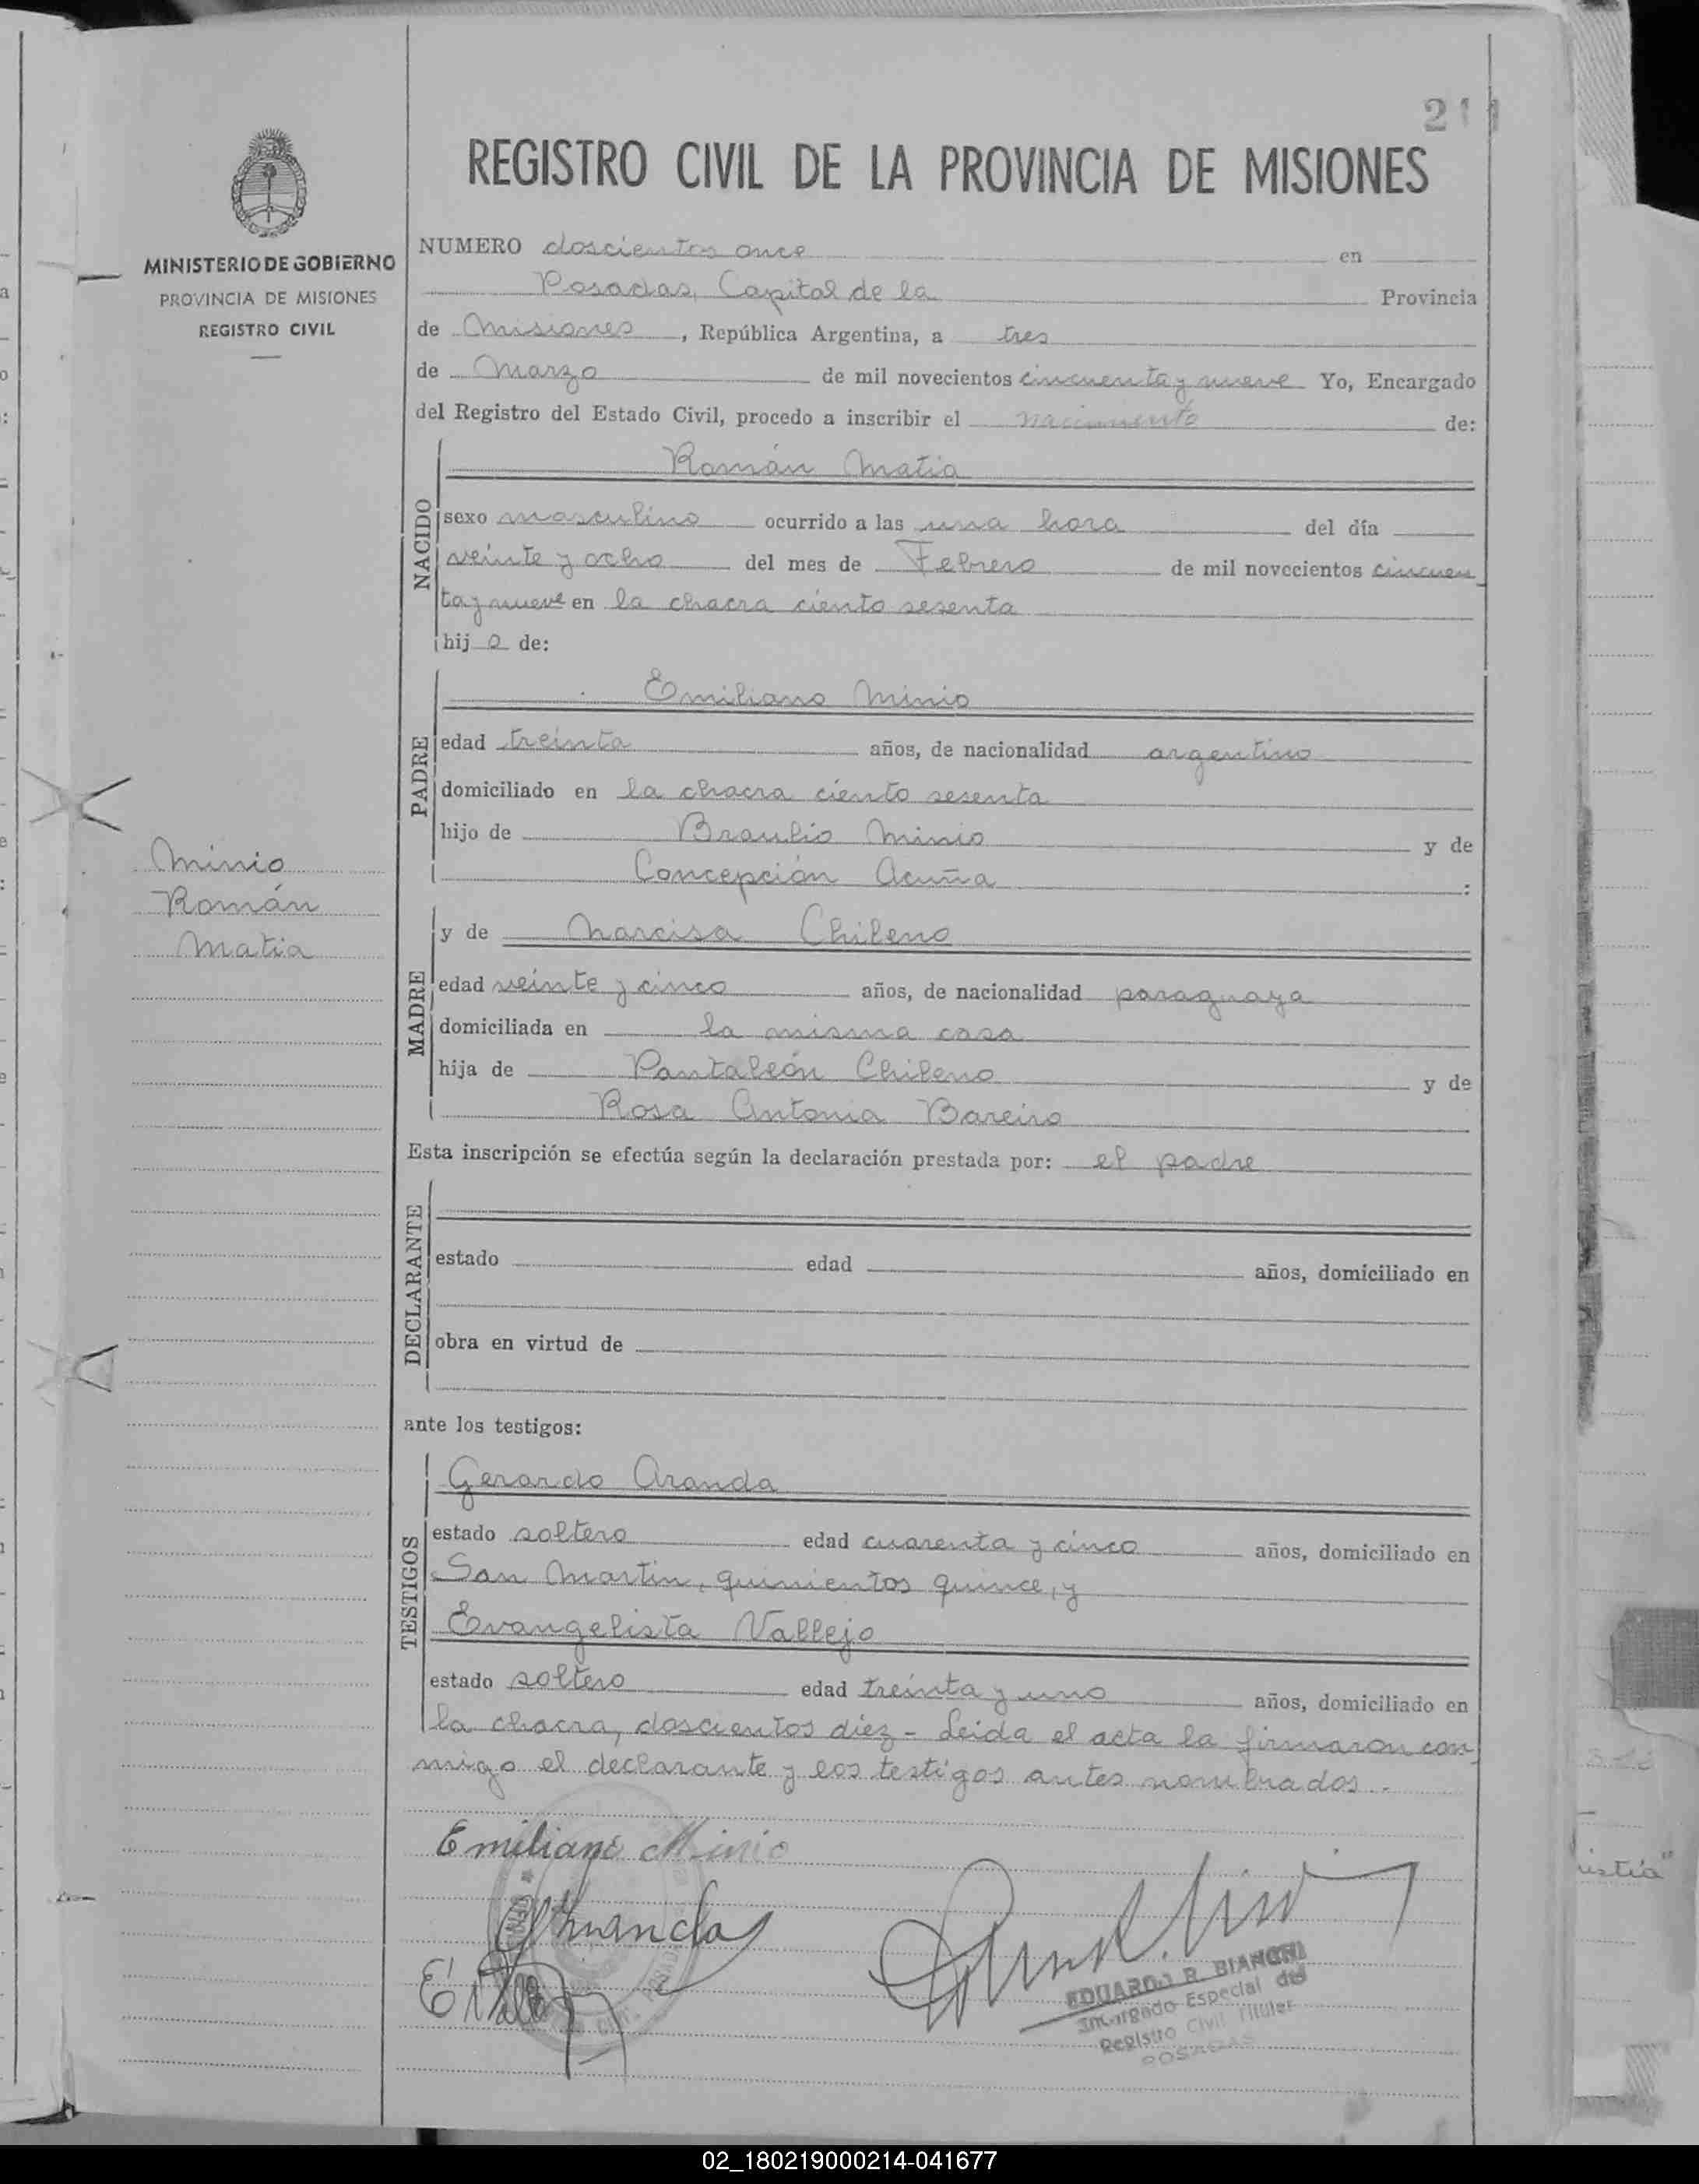 211
REGISTRO CIVIL DE LA PROVINCIA DE MISIONES
MINISTERIO DE GOBIERNO
PROVINCIA DE MISIONES
REGISTRO CIVIL
NUMERO doscientos once en
Posadas, Capital de la Provincia
de Misiones, República Argentina, a tres
de Marzo de mil novecientos cincuenta y nueve Yo, Encargado
del Registro del Estado Civil, procedo a inscribir el nacimiento de:
NACIDO
Román Matia
sexo masculino ocurrido a las una hora del día
veinte y ocho del mes de Febrero de mil novecientos cincuen
ta y nueve en la chacra ciento sesenta
hij o de:
PADRE
Emiliano Minio
edad treinta años, de nacionalidad argentino
domiciliado en la chacra ciento sesenta
hijo de Braulio Minio y de
Concepción Acuña :
Minio
Román
Matia
MADRE
y de Narcisa Chileno
edad veinte y cinco años, de nacionalidad paraguaya
domiciliada en la misma casa
hija de Pantaleón Chileno y de
Rosa Antonia Bareiro
Esta inscripción se efectúa según la declaración prestada por: el padre
DECLARANTE
estado edad años, domiciliado en
obra en virtud de
ante los testigos:
TESTIGOS
Gerardo Aranda
estado soltero edad cuarenta y cinco años, domiciliado en
San Martin, quinientos quince, y
Evangelista Vallejo
estado soltero edad treinta y uno años, domiciliado en
la chacra, doscientos diez - Leida el acta la firmaron con
migo el declarante y los testigos antes nombrados.
Emiliano Minio
EDUARDO R. BIANCHI
Encargado Especial del
Registro Civil Titular
POSADAS
02_180219000214-041677